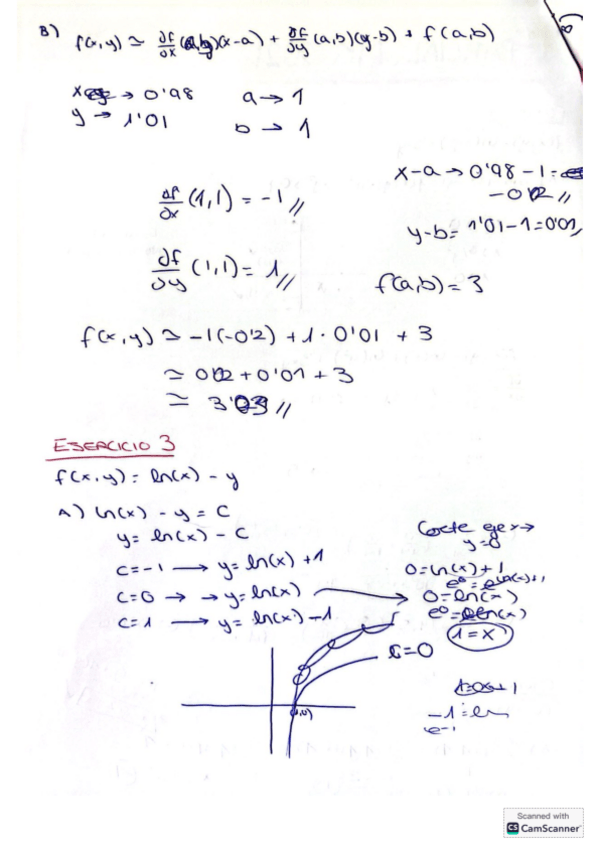 B) f(x,y) ≃ ∂f/∂x (a,b)(x-a) + ∂f/∂y (a,b)(y-b) + f(a,b)
x → 0'98 a → 1
y → 1'01 b → 1
x-a → 0'98-1=
-0'02 //
∂f/∂x (1,1) = -1 //
y-b= 1'01-1=0'01,
∂f/∂y (1,1) = 1 //
f(a,b) = 3
f(x,y) ≃ -1(-0'2) + 1 · 0'01 + 3
≃ 0'02 + 0'01 + 3
≃ 3'03 //
EJERCICIO 3
f(x,y) = ln(x) - y
A) ln(x) - y = C
y = ln(x) - C
C=-1 → y = ln(x) + 1
C=0 → → y = ln(x)
C=1 → y = ln(x) - 1
Corte eje x →
y=0
0=ln(x)+1
e⁰=e^ln(x)+1
0=ln(x)
e⁰=e^ln(x)
1=x
C=0
(1,0)
-1=ln
e-1
Scanned with
CS CamScanner